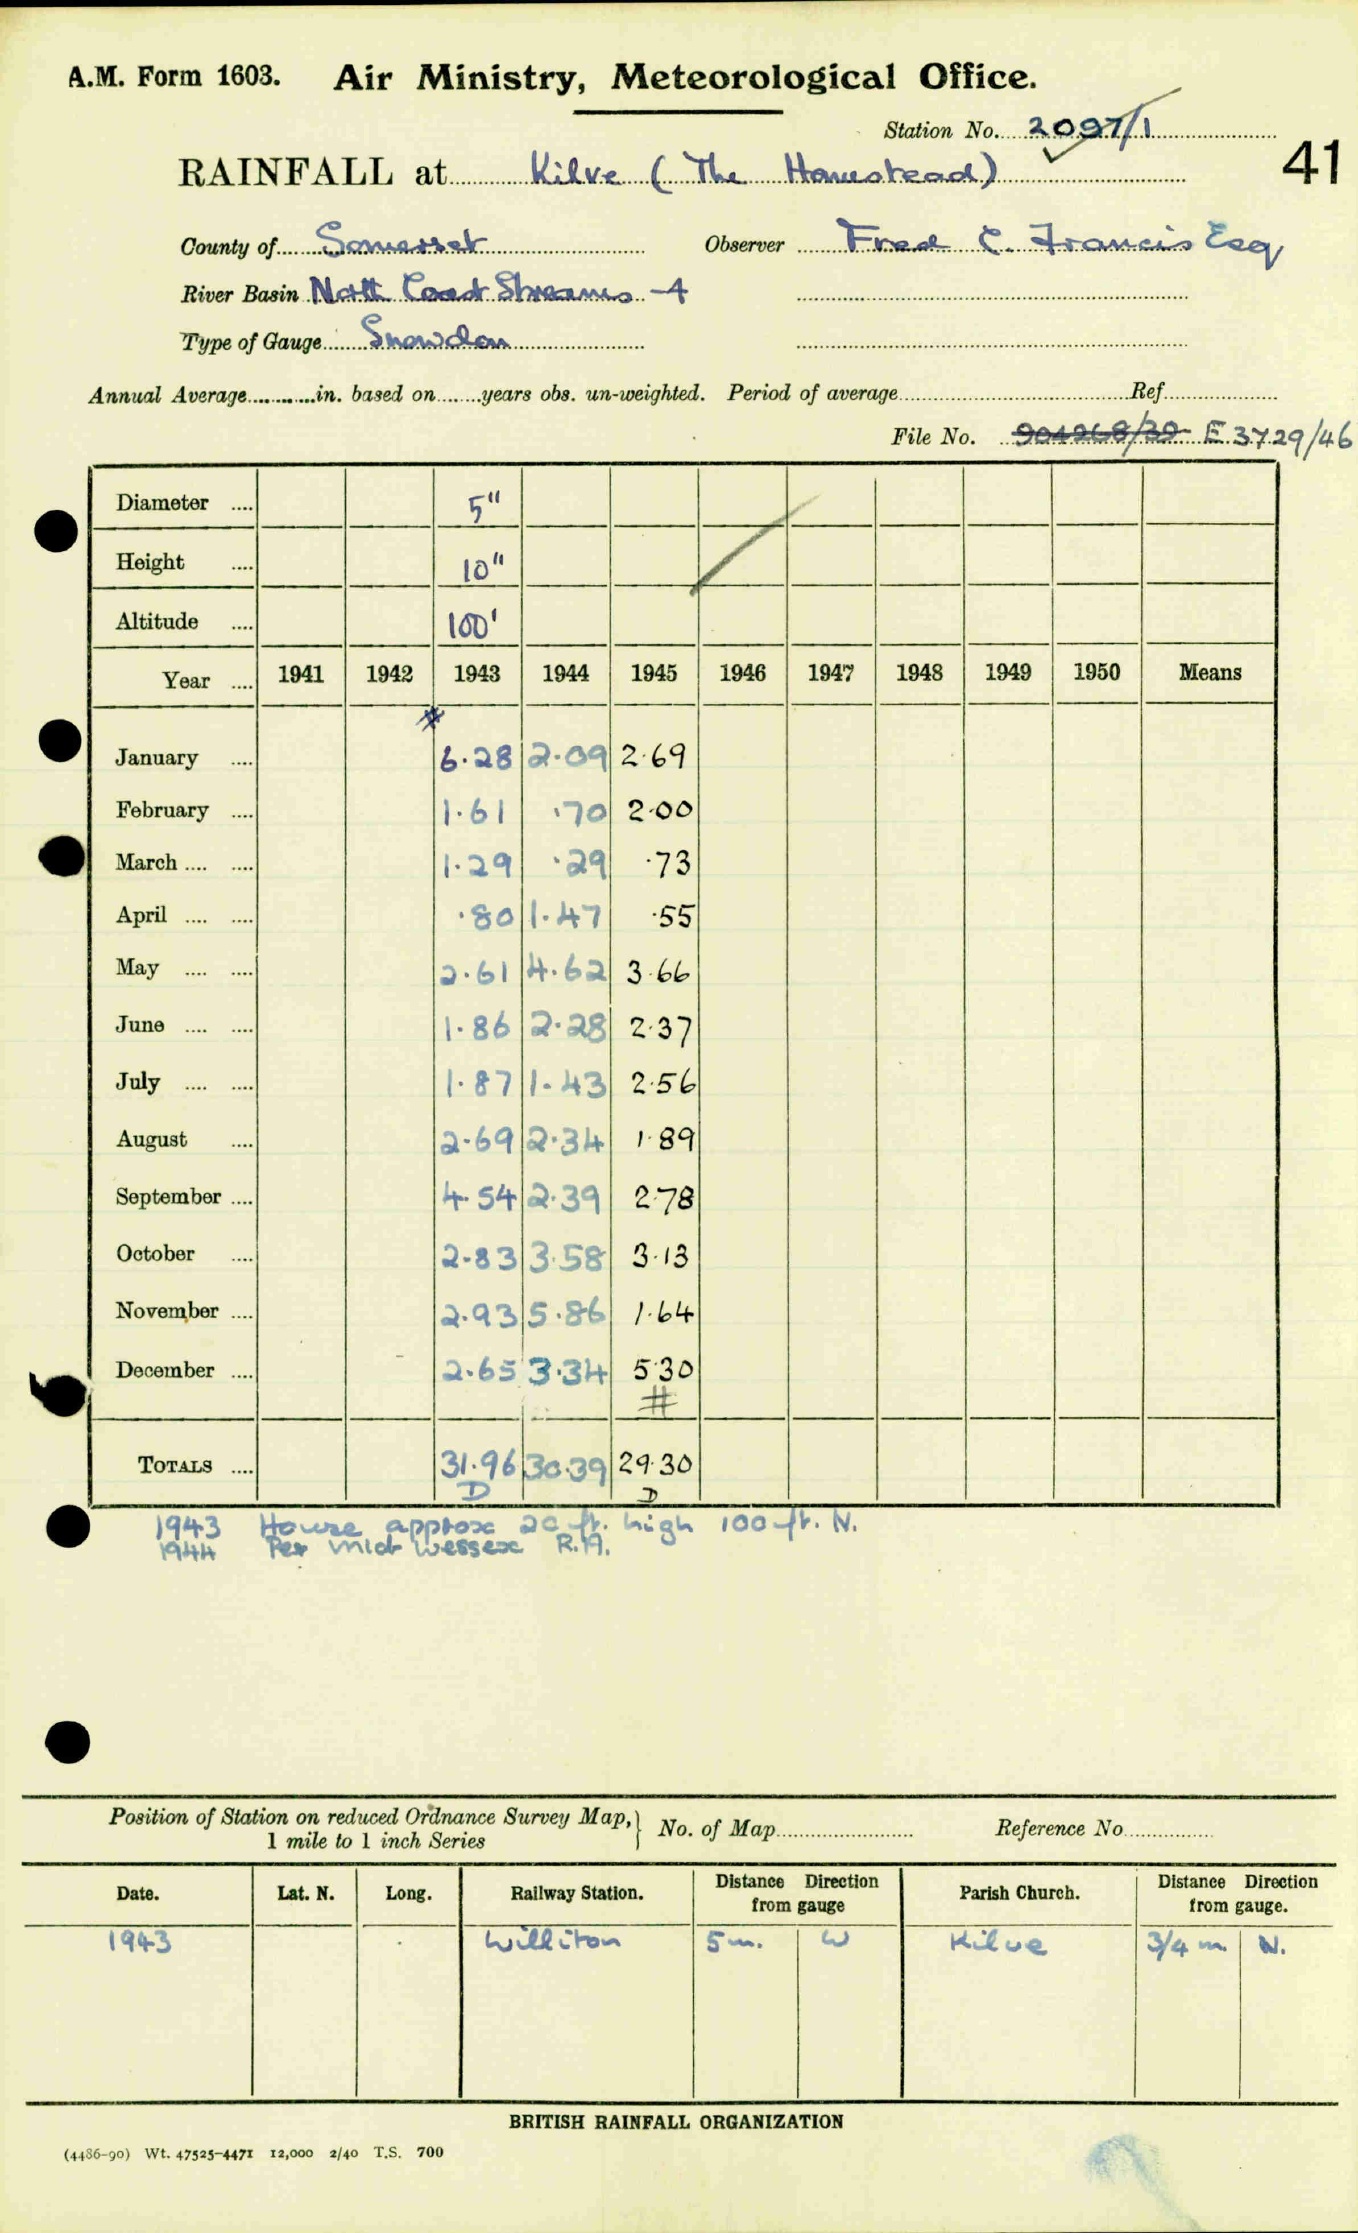 A.M. Form 1603. Air Ministry, Meteorological Office.
Station No. 2097/1
41
RAINFALL at Kilve (The Homestead)
County of Somerset Observer Fred C. Francis Esq
River Basin North Coast Streams -4
Type of Gauge Snowdon
Annual Average............in. based on........years obs. un-weighted. Period of average Ref.
File No. 904268/39 E 3729/46
Diameter .... 5"
Height .... 10"
Altitude .... 100'
Year .... 1941 1942 1943 1944 1945 1946 1947 1948 1949 1950 Means
January .... 6.28 2.09 2.69
February .... 1.61 .70 2.00
March .... .... 1.29 .29 .73
April .... .... .80 1.47 .55
May .... .... 2.61 4.62 3.66
June .... .... 1.86 2.28 2.37
July .... .... 1.87 1.43 2.56
August .... 2.69 2.34 1.89
September .... 4.54 2.39 2.78
October .... 2.83 3.58 3.13
November .... 2.93 5.86 1.64
December .... 2.65 3.34 5.30
#
TOTALS .... 31.96 30.39 29.30
D D
1943 House approx 20 ft. high 100 ft. N.
1944 Per Mid Wessex R.A.
Position of Station on reduced Ordnance Survey Map, 1 mile to 1 inch Series } No. of Map Reference No
Date. Lat. N. Long. Railway Station. Distance Direction from gauge Parish Church. Distance Direction from gauge.
1943 Williton 5 m. W Kilve 3/4 m. N.
BRITISH RAINFALL ORGANIZATION
(4486-90) Wt. 47525-4471 12,000 2/40 T.S. 700